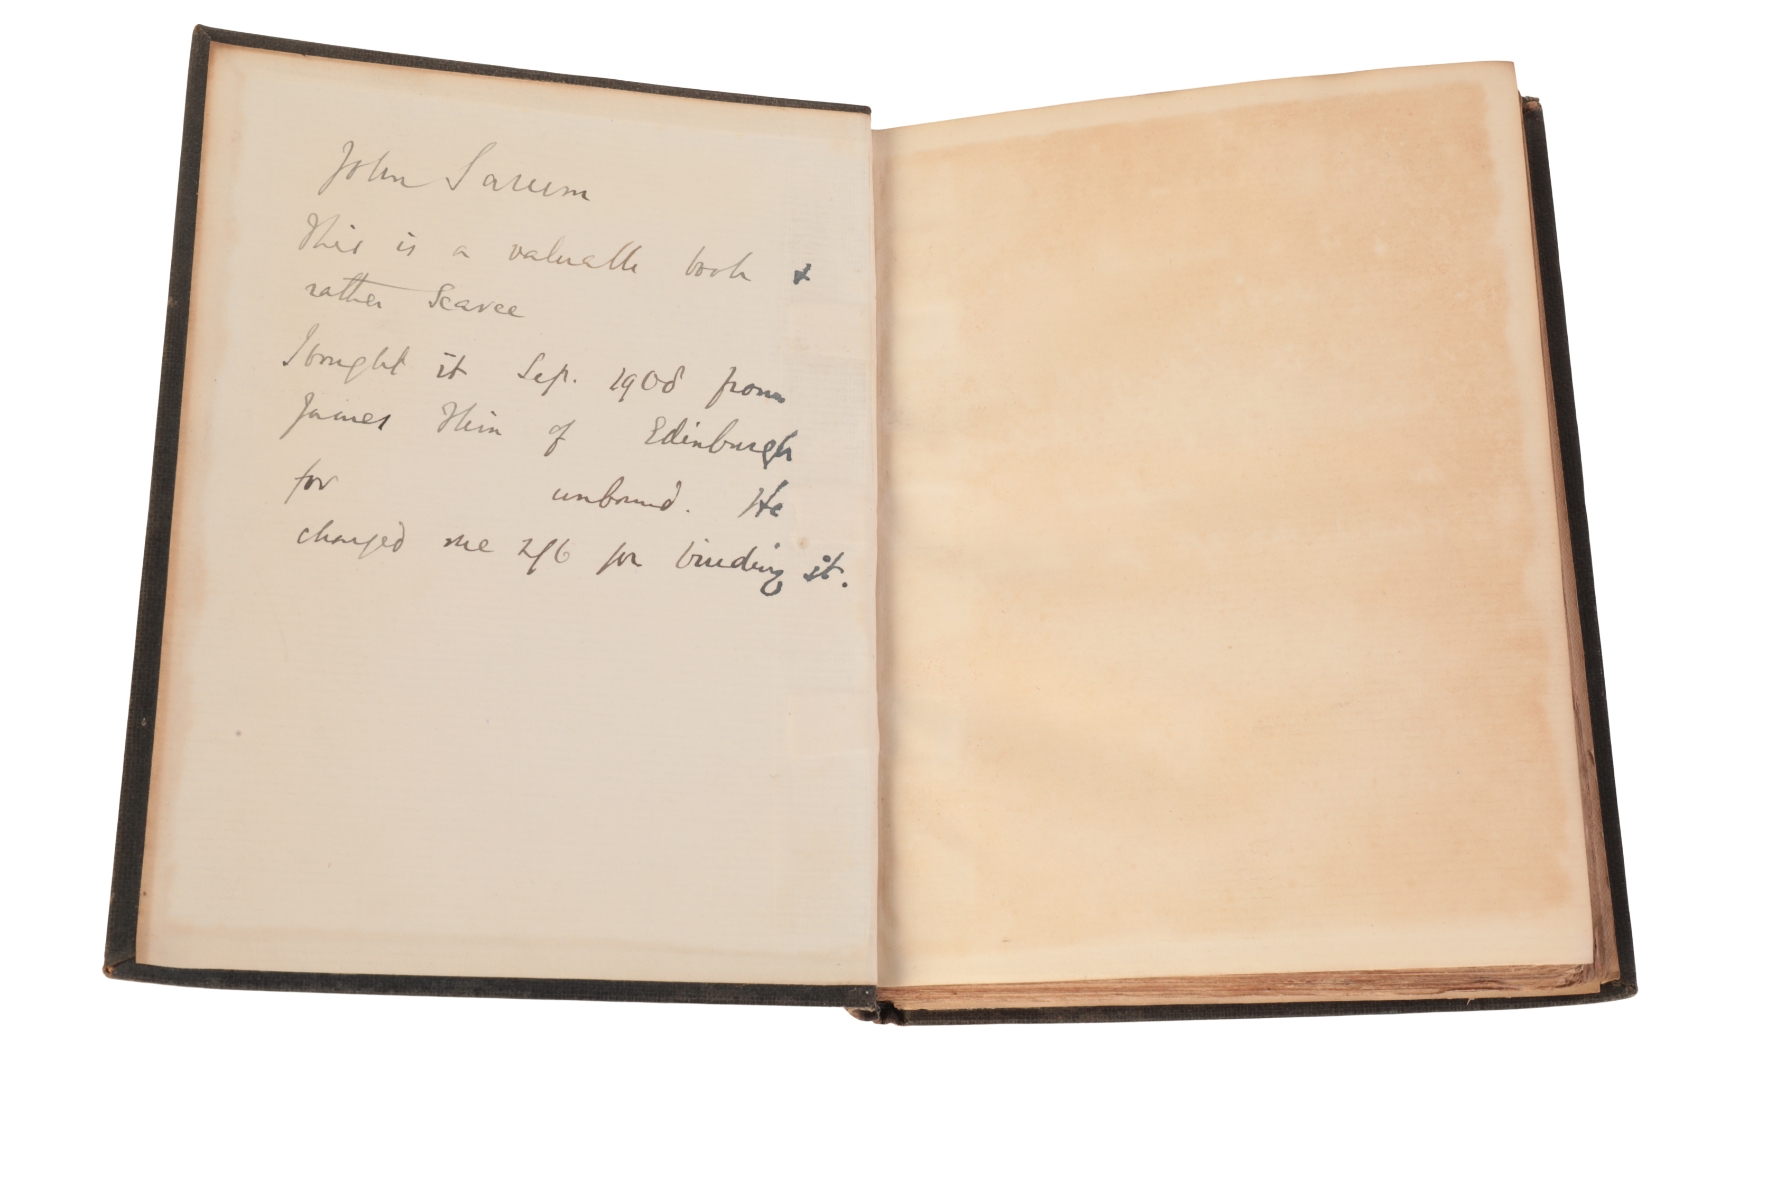 John Sarum
This is a valuable book &
rather scarce
I bought it Sep. 1908 from
James Thin of Edinburgh
for unbound. He
charged me 2/6 for binding it.